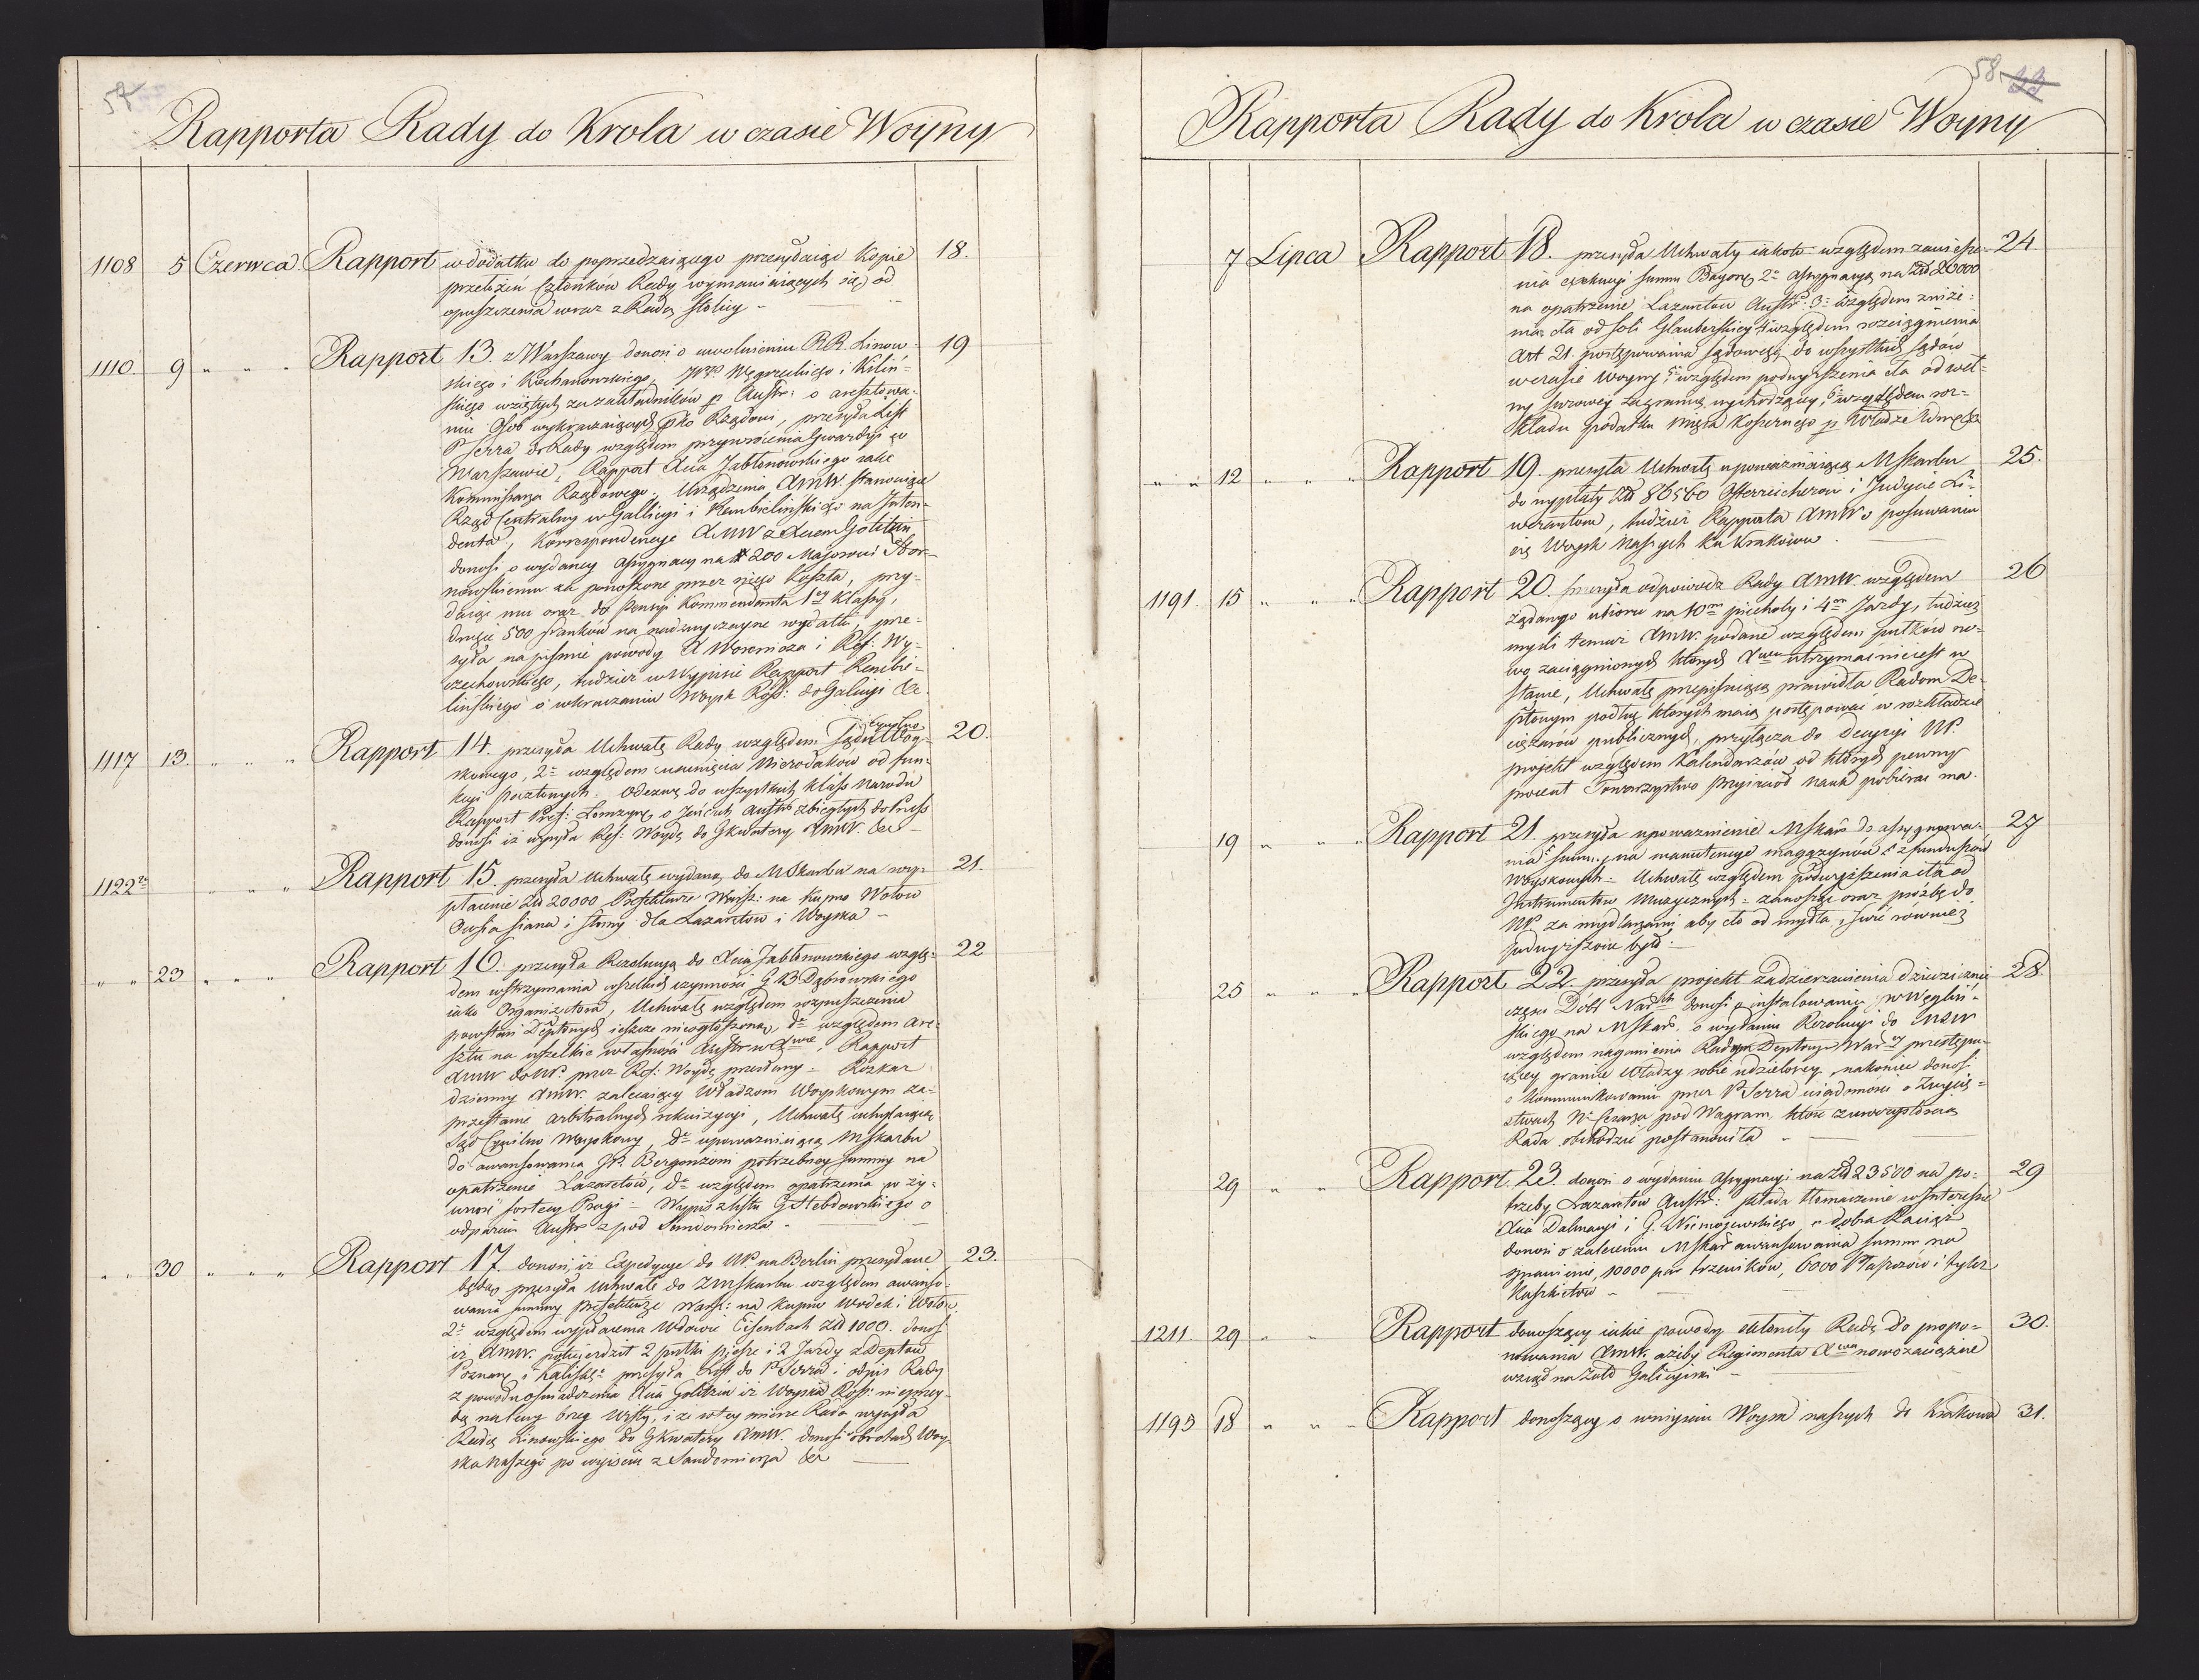 57
Rapporta Rady do Krola w czasie Woyny
1108 5 Czerwca Rapport w dodatku do poprzedzaiącego przesyłaiąc kopie 18.
przełożeń Członków Rady wymawiaiących się od
opuszczenia wraz z Radą stolicy -
1110 9 " " " Rapport 13. z Warszawy donosi o uwolnieniu R.R. Linow- 19
skiego i Kochanowskiego, Węgrzeckiego i Kiliń-
skiego wziętych za zakładników p Austr: o aresztowa-
niu Osób wykraczaiących pko Rządowi, przesyła List
P Serra do Rady względem przywrócenia Gwardyi w
Warszawie, Rapport Xcia Jabłonowskiego jako
Kommissarza Rządowego, Urządzenia XMW. stanowiące
Rząd Centralny w Gallicyi i Rembielinskiego na Inten-
denta, Korrespondencye XMW z Xciem Golitzin
donosi o wydaney assygnacyi na # 200 Majorowi Hor-
nowskiemu za ponoszone przez niego koszta, przy-
daiąc mu oraz do Pensyi Kommendanta 1ey Klassy,
drugie 500 franków na nadzwyczayne wydatki, prze-
syła na piśmie powody R Woronicza i Ref: Wy-
czechowskiego, tudzież w Wypisie Rapport Rembie-
lińskiego o wkraczaniu Woysk Ross: do Galicyi &c.
1117 13. " " " Rapport 14. przesyła Uchwałę Rady względem Sądu Cywilno Woy- 20.
skowego, 2° względem usunięcia Nierodaków od fun-
kcyi Pocztowych. Odezwę do wszystkich klass Narodu
Rapport Pref: Łomżyn: o Jeńcach Austr: zbiegłych do Pruss
donosi iż wysyła Ref: Woydę do Gkwatery XMW. &c -
1122 " " " Rapport 15. przesyła Uchwałę wydaną do MSkarbu na wy- 21.
płacenie Zł 20000 Prefekturze Warsz: na kupno Wołów
Owsa siana i słomy dla Lazaretów i Woyska -
" " 23 " " " Rapport 16. przesyła Rezolucyą do Xcia Jabłonowskiego wzglę- 22
dem wstrzymania wszelkich czynności G B Dąbrowskiego
iako Organizatora, Uchwałę względem rozpuszczenia
powstań Deptowych ieszcze nieogłoszoną, d° względem are-
sztu na wszelkie własności Austr: w Xtwie, Rapport
XMW do NP. przez Ref: Woydę przesłany - Rozkaz
dzienny XMW. zalecaiący Władzom Woyskowym za-
przestanie arbitralnych rekwizycyi, Uchwałę uchylaiącą
Sąd Cywilno Woyskowy, d° upoważniaiącą MSkarbu
do awansowania JP. Bergonzoni potrzebney summy na
opatrzenie Lazaretów, d° względem opatrzenia w ży-
wność fortecy Pragi - Wypis z listu G Hebdowskiego o
odparciu Austr: z pod Sandomierza -
" " 30 " " " Rapport 17. donosi, iż Expedycye do NP. na Berlin przesyłane 23.
będą, przesyła Uchwałę do ZMSkarbu względem awanso-
wania summy Prefekturze Warsz: na kupno Wódek i Wołow
2° względem wypłacenia Wdowie Eisenbach Zł 1000. donosi
iż XMW. potwierdził 2 pułki piesze i 2 Jazdy z Deptów
Poznan: i Kalisk: przesyła List do P Serra i odpis Rady
z powodu oświadczenia Xcia Golitzin iż Woyska Ross: nieprzey-
dą na lewy brzeg Wisły, i że w tey mierze Rada wysyła
Radcę Linowskiego do Gkwatery XMW. donosi o obrotach Woy-
ska naszego po wyiściu z Sandomierza &c
58 22
Rapporta Rady do Krola w czasie Woyny
7 Lipca Rapport 18. przesyła Uchwały iakoto względem zawiesze- 24
nia exekucyi summ Bayon: 2° assygnacyą na Zł 20000
na opatrzenie Lazaretów Austr: 3° względem zniże-
nia cła od soli Glauberskiey 4° względem rozciągnienia
Art 21. postępowania sądowego do wszystkich sądów
w czasie Woyny 5° względem podwyższenia cła od weł-
ny surowey zagranicę wychodzącey, 6° względem roz-
kładu podatku mięsa koszernego p Władze Admcyine
" " 12 " " " Rapport 19. przesyła Uchwałę upoważniaiącą MSkarbu 25.
do wypłaty Zł 86560 Osterreicherowi i Judycie Li-
werantom, tudzież Rapporta XMW o posuwaniu
się Woysk Naszych ku Krakowu.
1191. 15 " " " Rapport 20. przesyła odpowiedź Rady XMW. względem 26
żądanego ubioru na 10m piechoty i 4m Jazdy, tudzież
myśli temuż XMW. podane względem pułków no-
wo zaciągnionych których Xtwo utrzymać niejest w
stanie, Uchwałę przepisuiącą prawidła Radom De-
ptowym podług których maią postępować w rozkładzie
ciężarów publicznych, przyłącza do Decyzyi NP.
projekt względem Kalendarzów od których pewny
procent Towarzystwo Przyiaciół Nauk pobierać ma.
19 " " " Rapport 21. przesyła upoważnienie MSkarb: do assygnowa- 27
nia summ, na manutencye magazynów z funduszów
Woyskowych. Uchwałę względem podwyższenia cła od
Instrumentów Muzycznych - zanosząc oraz prożbę do
NP. za mydlarzami aby cło od mydła, świć również
podwyższone było -
25 " " " Rapport 22. przesyła projekt zadzierżawienia dziedziczney 28.
części Dóbr Nar: donosi o instalowaniu W Węgliń-
skiego na MSkarb: o wydaniu Rezolucyi do MSW
względem naganienia Radom Deptowey War: przestępu-
iącey granice Władzy sobie udzieloney, nakoniec donosi
o kommunikowaniu przez P Serra wiadomości o Zwycię-
stwach N. Cesarza pod Wagram, które z uroczystością
Rada obchodzić postanowiła -
29 " " Rapport 23. donosi o wydaniu assygnacyi na Zł 23500 na po- 29
trzeby Lazaretów Austr: składa tłomaczenie w Interessie
Xcia Dalmacyi i G. Niemojewskiego, o dobra Raciąż
donosi o zaleceniu MSkarb awansowania summ na
sprawienie, 10000 par trzewików, 6000 Płaszczów i tyleż
Kaszkietów -
1211. 29 " " Rapport donoszący iakie powody skłoniły Radę do propo- 30.
nowania XMW. ażeby Regimenta Xtwa nowozaciążne
wziąć na Żołd Galicyiski -
1193 18 " " " Rapport donoszący o wniyściu Woysk naszych do Krakowa 31.